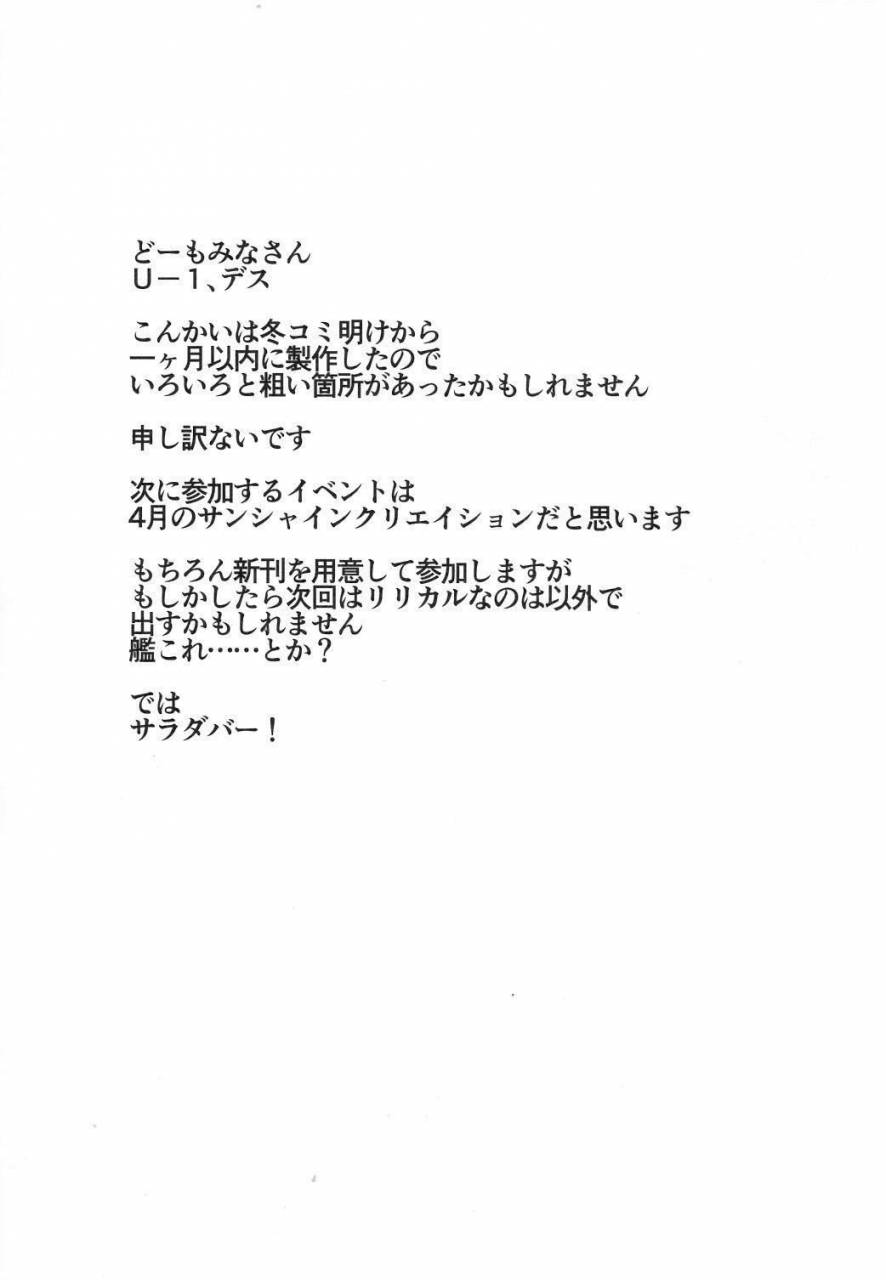 どーもみなさん
U－1、デス
こんかいは冬コミ明けから
一ヶ月以内に製作したので
いろいろと粗い箇所があったかもしれません
申し訳ないです
次に参加するイベントは
4月のサンシャインクリエイションだと思います
もちろん新刊を用意して参加しますが
もしかしたら次回はリリカルなのは以外で
出すかもしれません
艦これ……とか？
では
サラダバー！